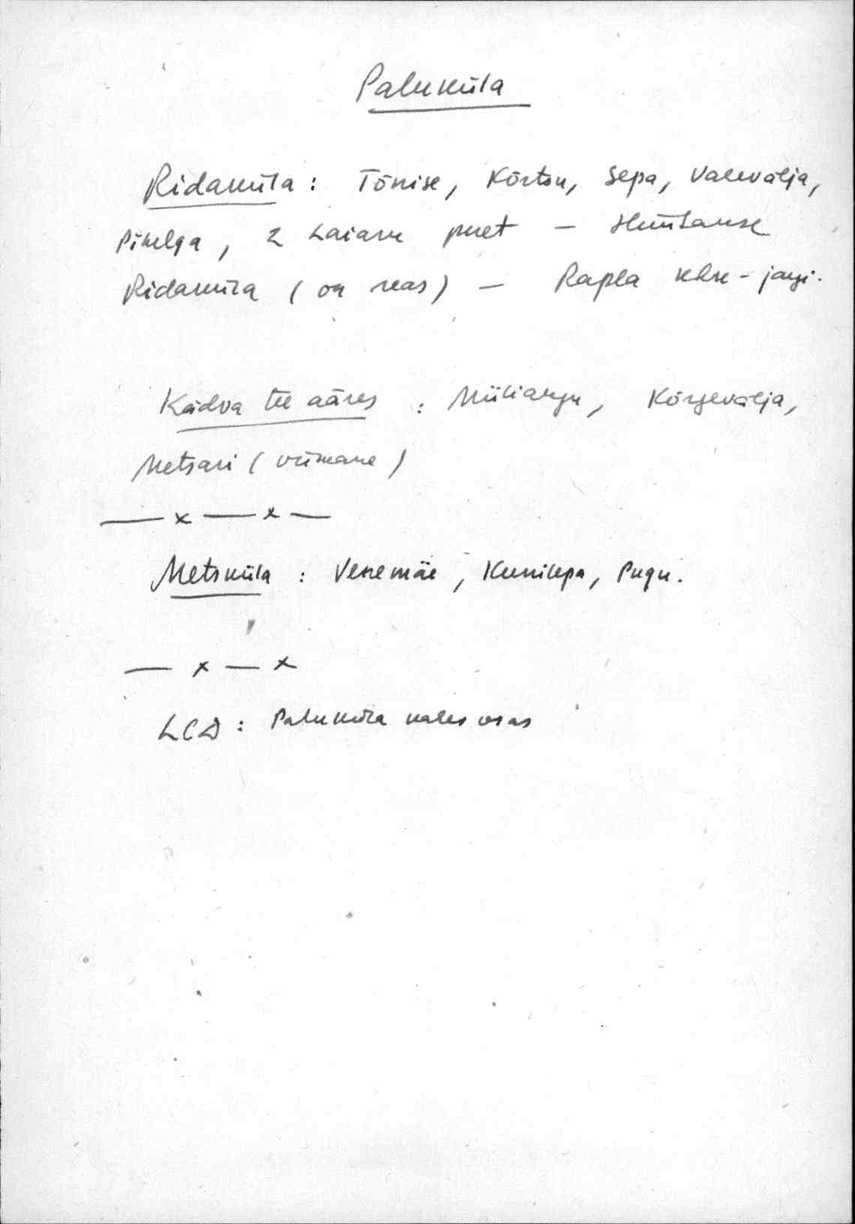 Paluküla
Ridaküla : Tõnise, Kõrtsu, Sepa, Vaevälja,
Pikelga, 2 Laiaru peret – Hüütakse
Ridaküla ( on reas ) – Rapla khk-jargi.
Kädva tee ääres : Miiliaugu, Kõrgevälja,
Metsari ( viimane )
— x — x —
Metsküla : Venemäe, Kunilepa, Pugu.
— x — x
LCD : Paluküla kahes osas